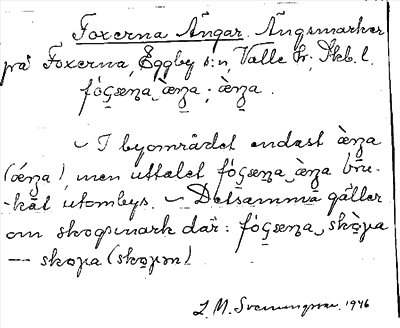 Foxerna Ängar. Ängsmarker
på Foxerna, Eggby s:n, Valle hr, Skb. l.
fóςsæŋa ̮ æŋa ; àŋa .
~ I byområdet endast àŋa
(áŋa), men uttalet fóςsæŋa ̮ àŋa bru-
-kat utombys. ~ Detsamma gäller
om skogsmark där: fóςsæŋa ̮ skòpa
— skopa (skopən)
L. M. Svenungsson. 1946